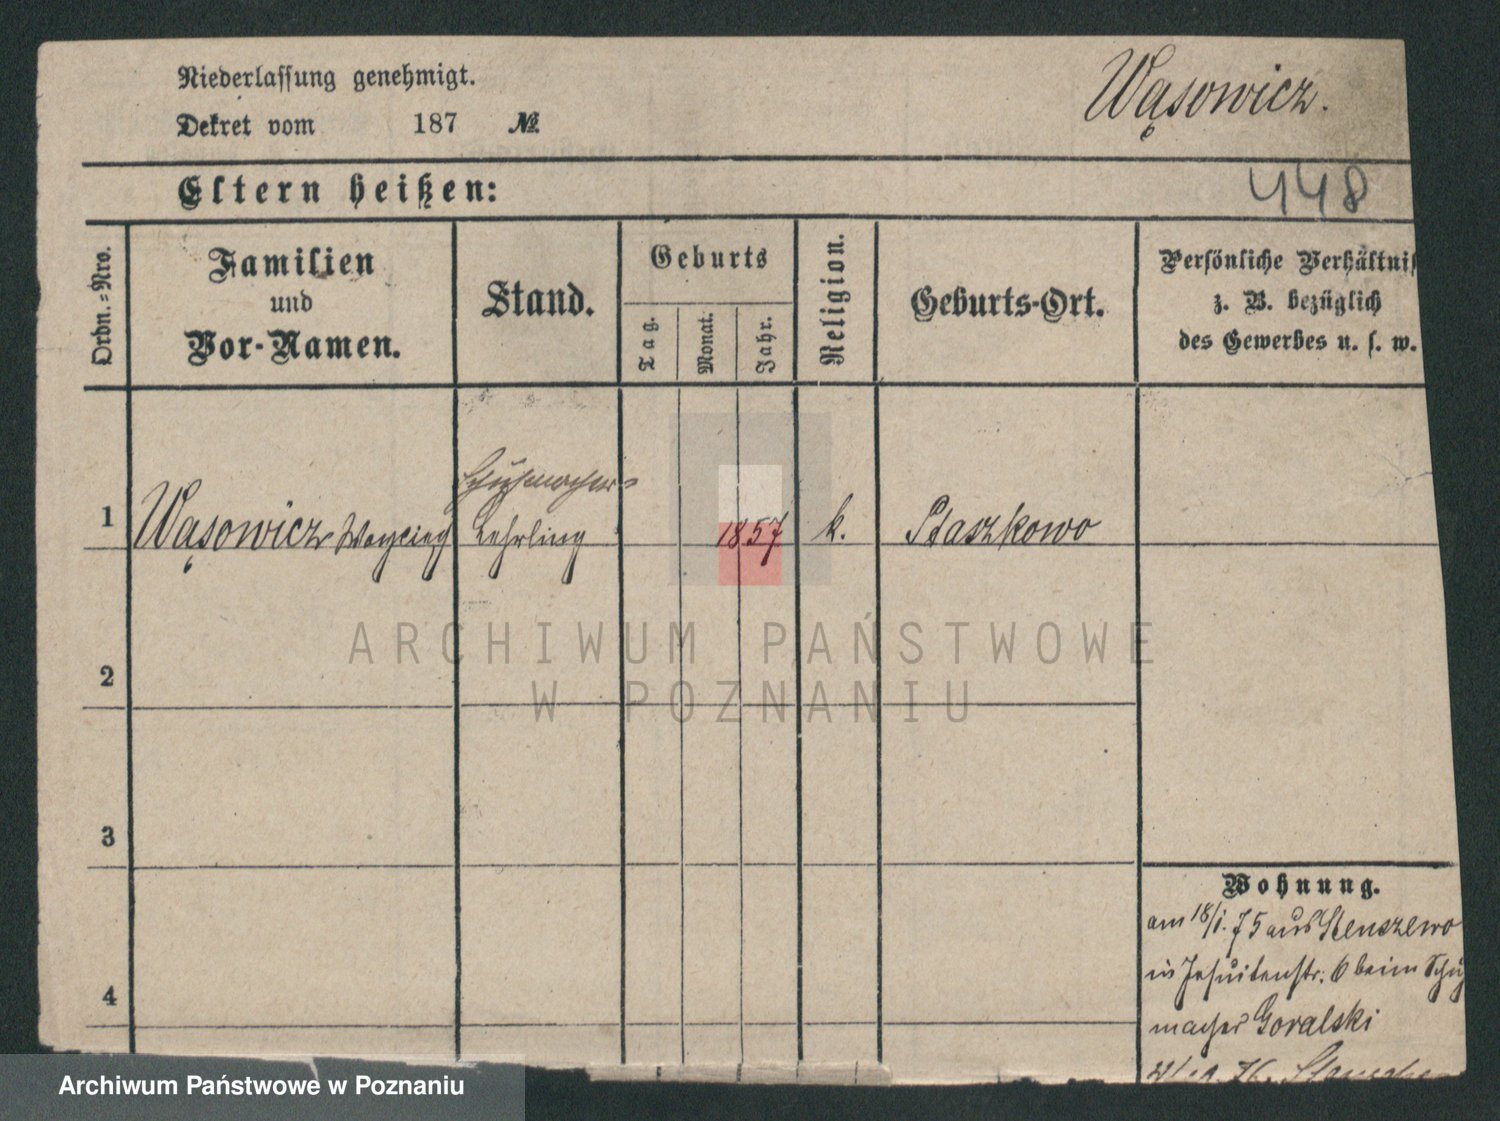 Niederlassung genehmigt.
Wąsowicz.
Dekret vom 187 №
448
Eltern heißen:
Ordn.-Nro.
Familien
und
Vor-Namen.
Stand.
Geburts
Tag.
Monat.
Jahr.
Religion.
Geburts-Ort.
Persönliche Verhältnis
z. B. bezüglich
des Gewerbes u. s. w.
Schuhmacher-
1 Wąsowicz Woyciech Lehrling 1857 k. Ptaszkowo
2
3
4
Wohnung.
am 18/1. 75 aus Stenszewo
in Jesuitenstr. 6 beim Schuh
macher Goralski
ARCHIWUM PAŃSTWOWE
W POZNANIU
Archiwum Państwowe w Poznaniu